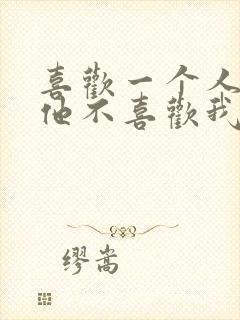 喜歡一个人
他不喜歡我
缪嵩